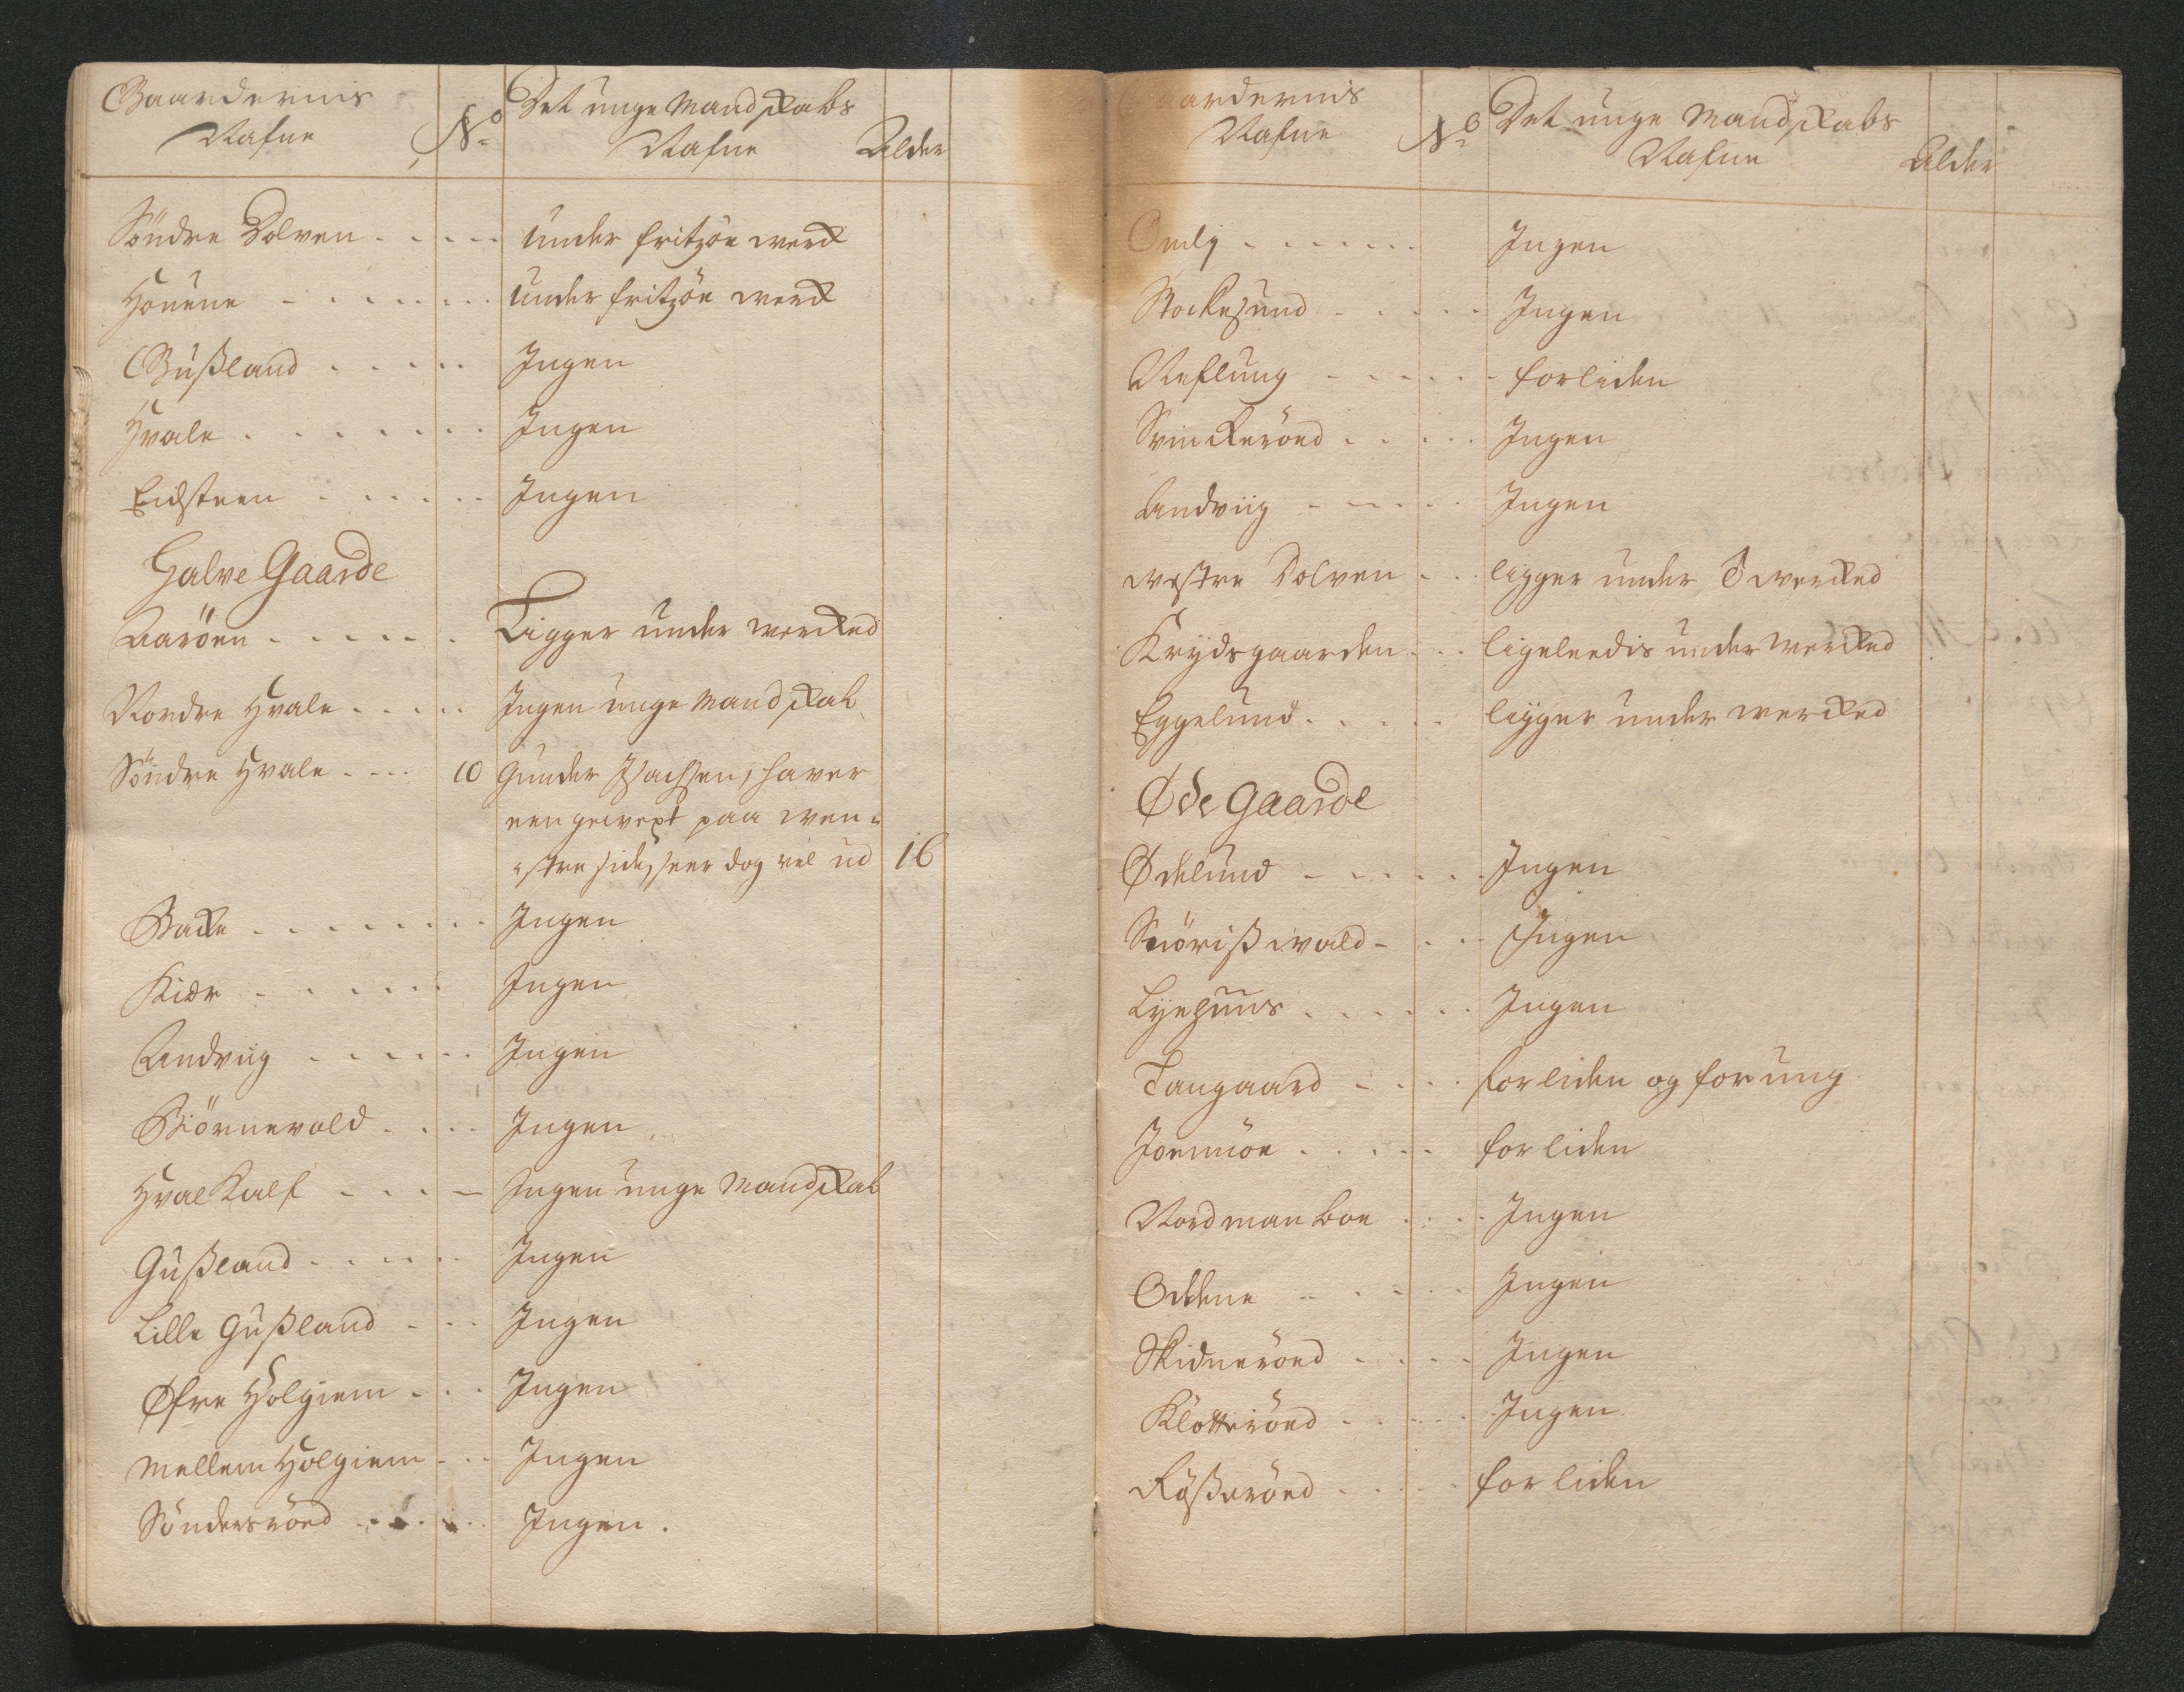 Gaardernis
Nafne
No
Det unge Mandskabs
Nafne
Alder
Söndre Dolven . . . . . Under fritzöe werck
Houene - . . . . . . Under fritzöe werck
Gußland . . . . . Ingen
Hvale . . . . . . . Ingen
Eidsteen . . . . . Ingen
Halve Gaarde
Aaröen . . . . . . Ligger under wercked
Nordre Hvale . . . . . Ingen unge Mandskab
Söndre Hvale . . . . 10 Gunder Isachsen, haver
een gewext paa wen-
-stre side, seer dog vel ud 16
Backe . . . . . . . Ingen
Kiær . . . . . . Ingen
Andviig . . . . . . Ingen
Biörnevold . . . . Ingen
Hval Kalf . . . - Ingen unge Mandskab
Gußland . . . . . Ingen
Lille Gußland . . . Ingen
Øfre Holgiem . . . Ingen
Mellem Holgiem . . . Ingen
Söndersröed . . . . . Ingen .
aardernis
Nafne
No
Det unge Mandskabs
Nafne
Alder
Omly . . . . . . Ingen
Stockesund . . . . . Ingen
Neflung . . . . . for liden
Svinckeröed . . . . . Ingen
Andviig . . . . . Ingen
westre Dolven . . . ligger under wercked
Krydsgaarden . . . ligeleedis under wercked
Eggelund . . . . . ligger under wercked
Øde Gaarde
Ødelund . . . . . Ingen
Snörißwald . . . . Ingen
Lyehuus . . . . . . Ingen
Tangaard . . . . for liden og for ung
Joenmöe . . . . . for liden
Nordmanboe . . . . Ingen
Oddene . . . . . Ingen
Skidneröed . . . . Ingen
Klötteröed . . . . . Ingen
Rößeröed . . . . . for liden